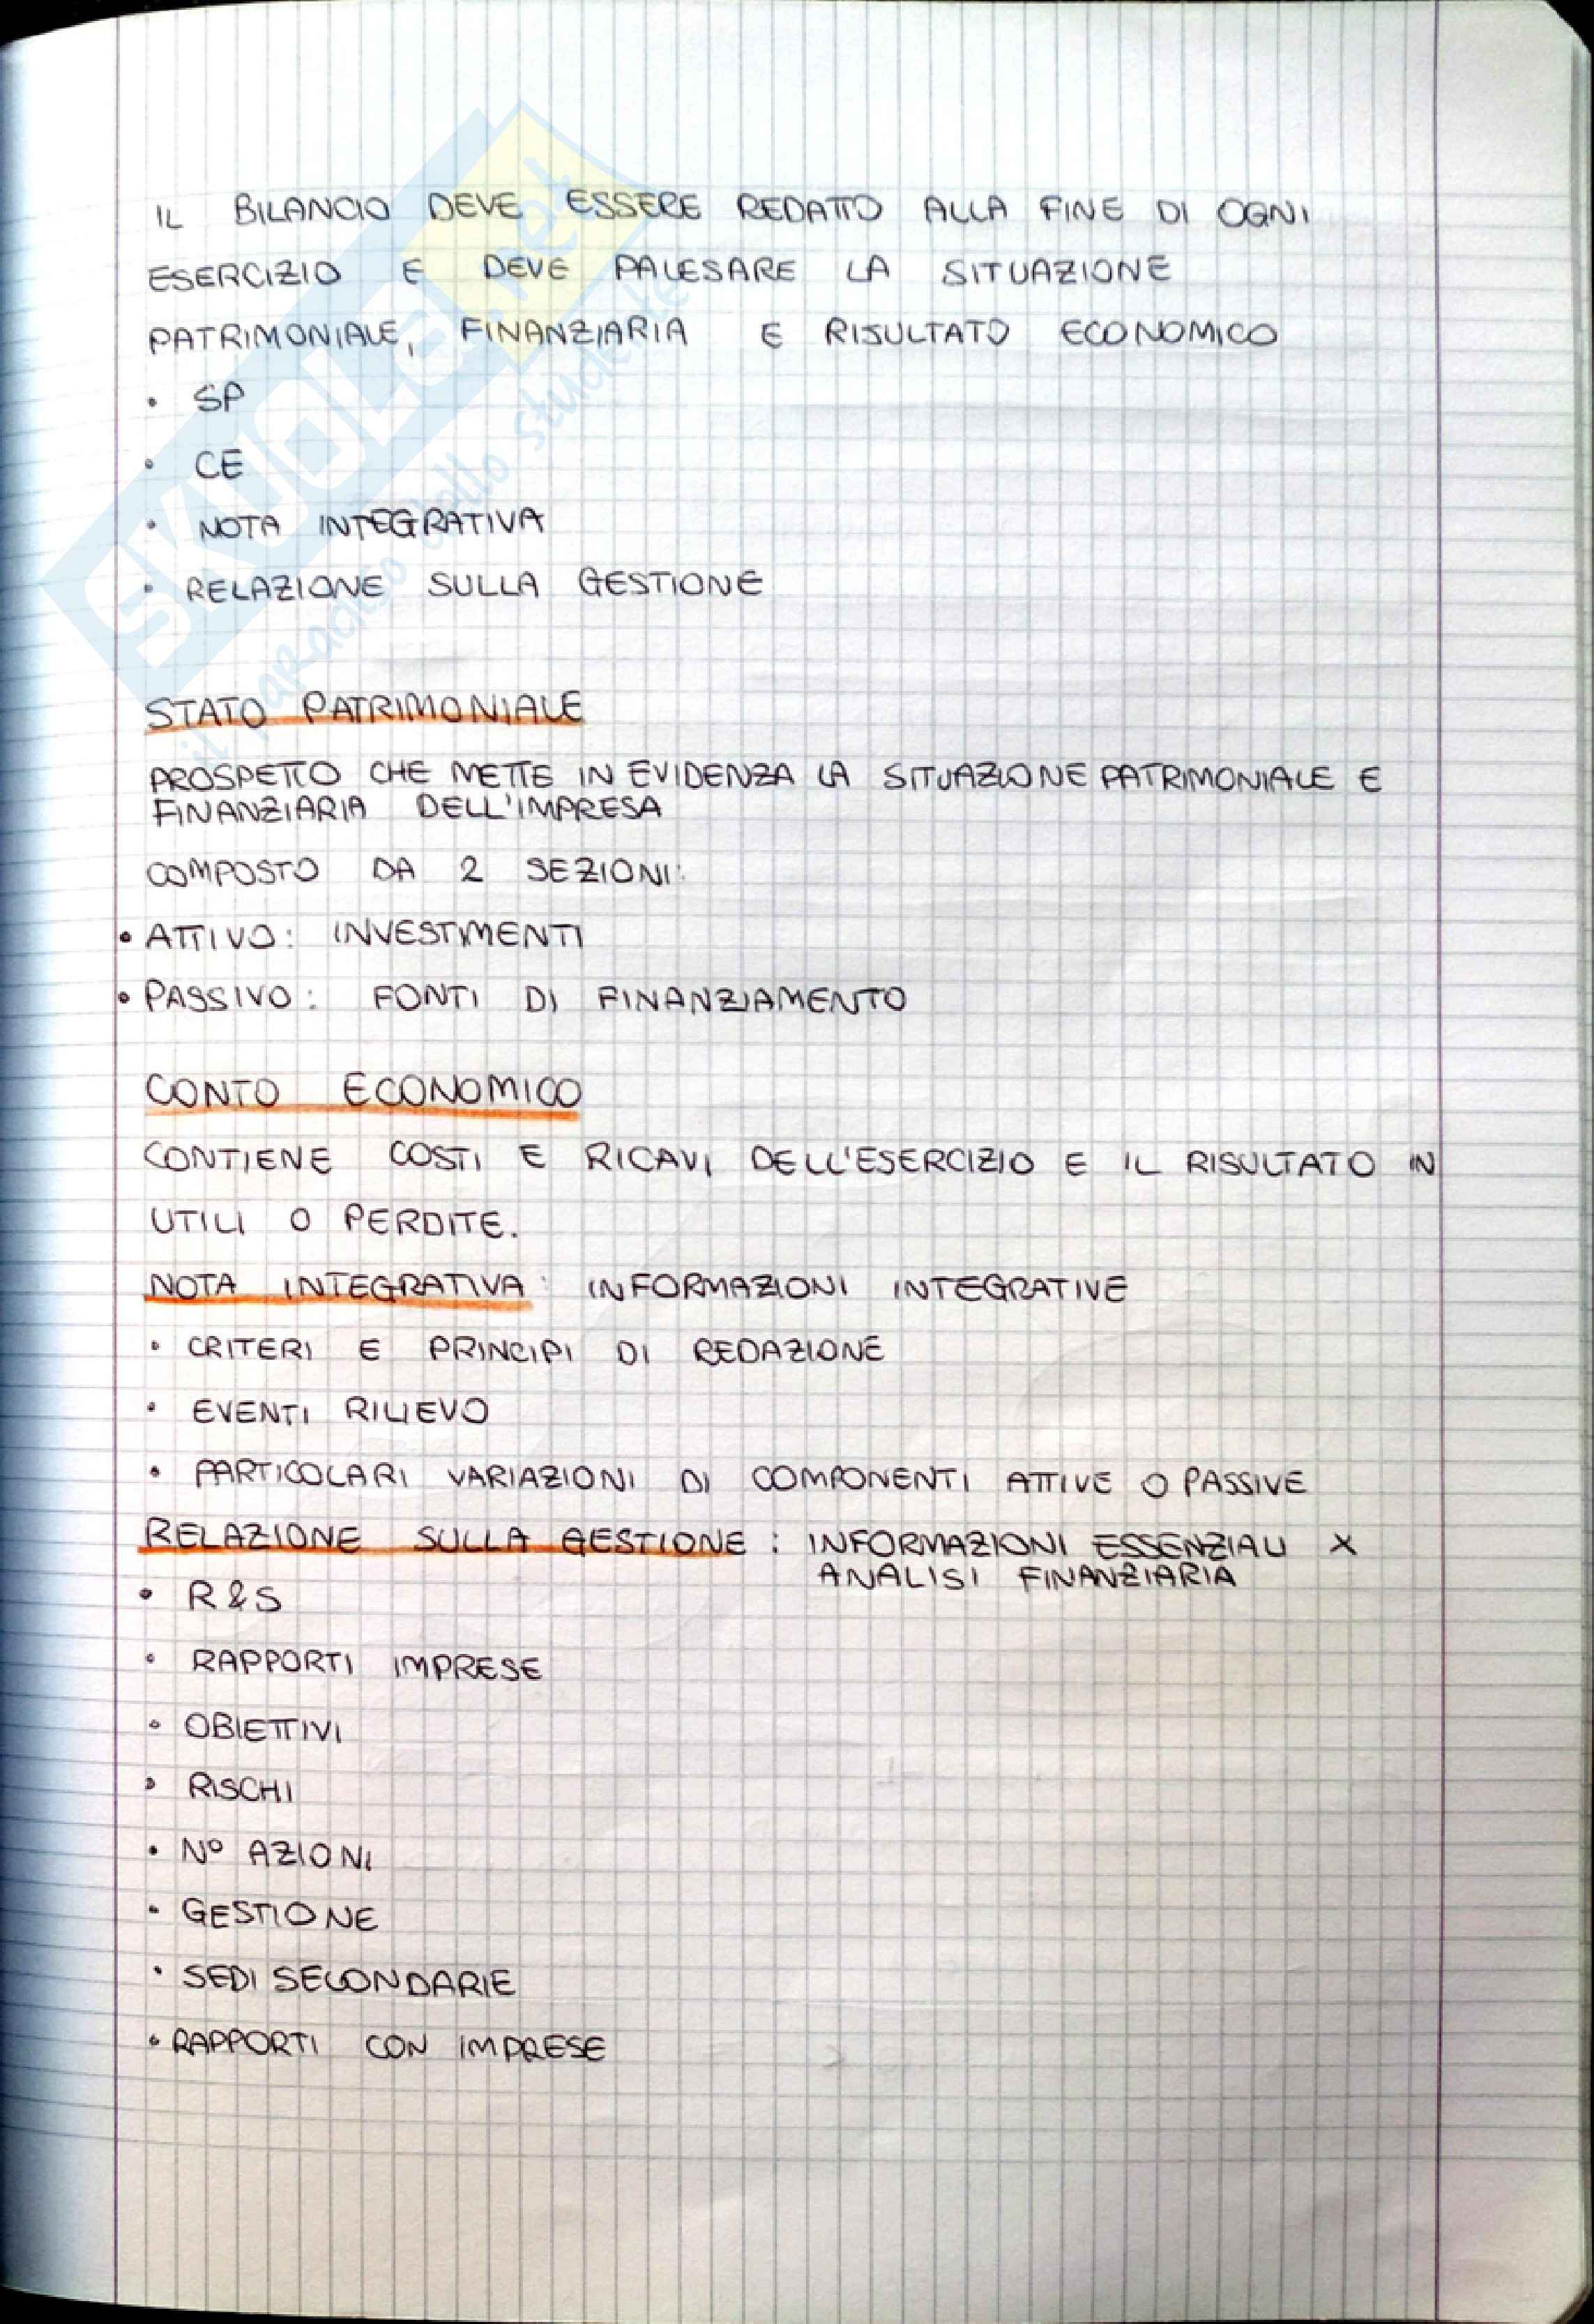 IL BILANCIO DEVE ESSERE REDATTO ALLA FINE DI OGNI
ESERCIZIO E DEVE PALESARE LA SITUAZIONE
PATRIMONIALE, FINANZIARIA E RISULTATO ECONOMICO
• SP
• CE
• NOTA INTEGRATIVA
• RELAZIONE SULLA GESTIONE
STATO PATRIMONIALE
PROSPETTO CHE METTE IN EVIDENZA LA SITUAZIONE PATRIMONIALE E
FINANZIARIA DELL'IMPRESA
COMPOSTO DA 2 SEZIONI:
• ATTIVO: INVESTIMENTI
• PASSIVO: FONTI DI FINANZIAMENTO
CONTO ECONOMICO
CONTIENE COSTI E RICAVI DELL'ESERCIZIO E IL RISULTATO IN
UTILI O PERDITE.
NOTA INTEGRATIVA: INFORMAZIONI INTEGRATIVE
• CRITERI E PRINCIPI DI REDAZIONE
• EVENTI RILIEVO
• PARTICOLARI VARIAZIONI DI COMPONENTI ATTIVE O PASSIVE
RELAZIONE SULLA GESTIONE: INFORMAZIONI ESSENZIALI X
ANALISI FINANZIARIA
• R&S
• RAPPORTI IMPRESE
• OBIETTIVI
• RISCHI
• N° AZIONI
• GESTIONE
• SEDI SECONDARIE
• RAPPORTI CON IMPRESE
SKUOLA.net
il paradiso dello studente